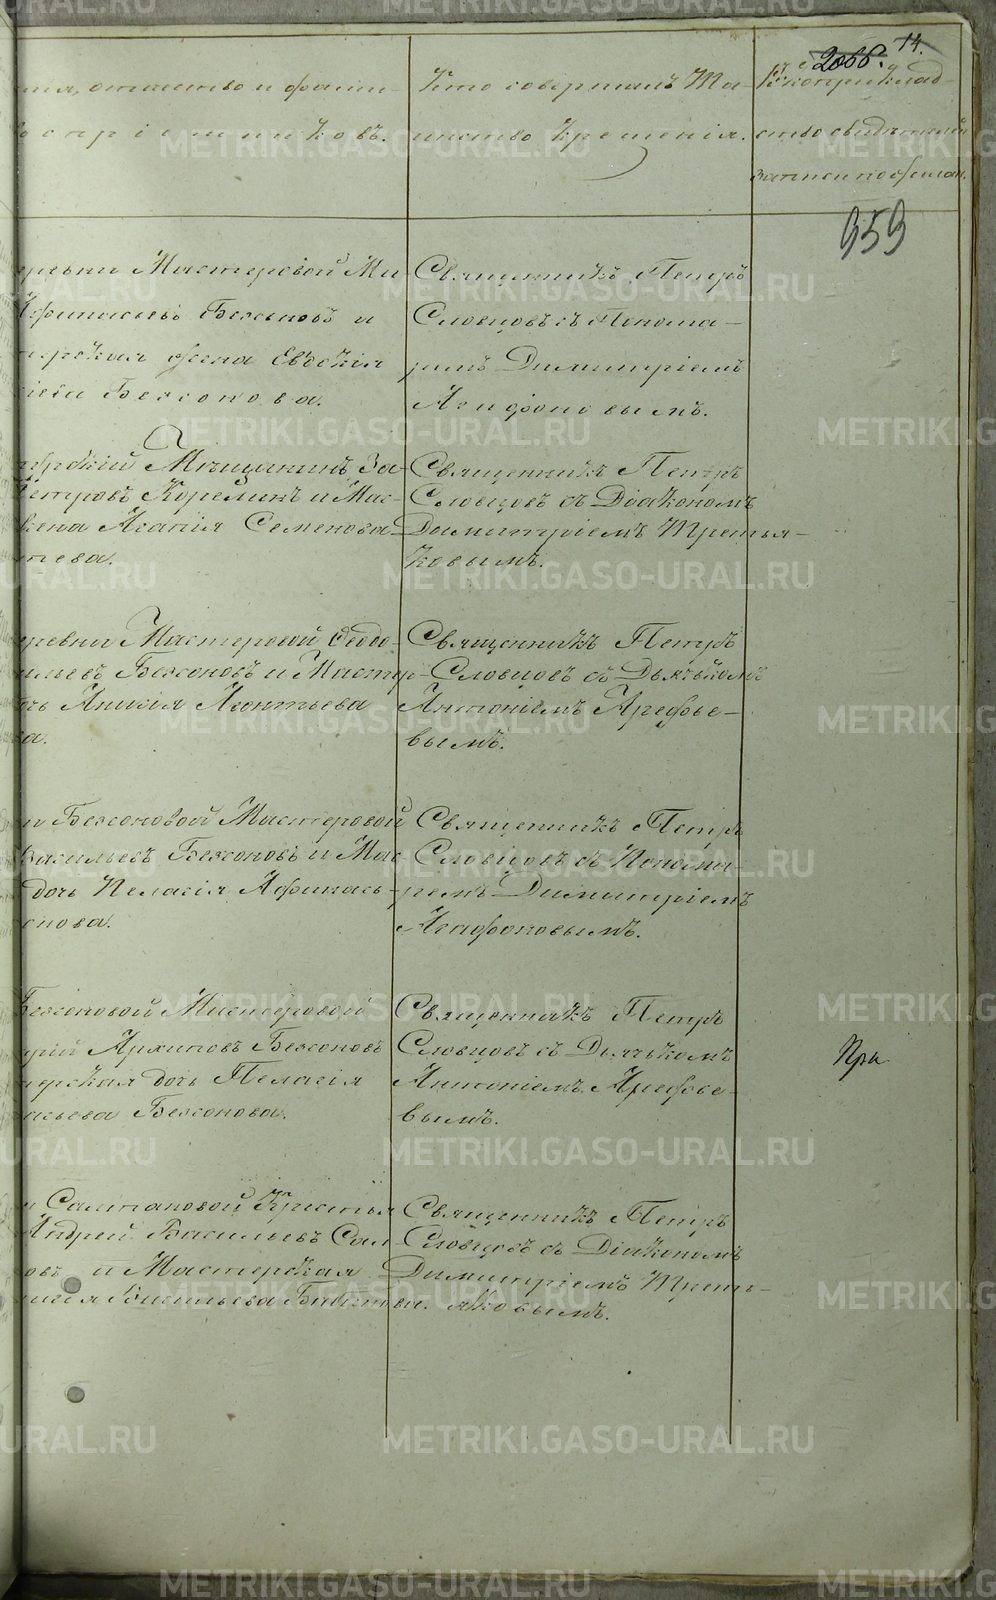 2066. 14.
имя, отчество и фами-
воспріемниковъ.
Кто совершалъ Та-
инство Крещенія.
Рукоприклад-
ство свидѣтелей
записи по желан.
959
деревни Мастеровой Ми
Афинасьевъ Бексоновъ и
жена Евдокія
Бексонова.
Священникъ Петръ
Словцовъ съ Понома-
ремъ Димитріемъ
Агафоновымъ.
Мѣщанинъ За-
Петровъ Корелинъ и Мас-
жена Агапія Семенова
Священникъ Петръ
Словцовъ съ Діакономъ
Димитріемъ Третья-
ковымъ.
деревни Мастеровой Ѳеодо-
Бексоновъ и Мастер-
дочь Анисія Леонтьева
Священникъ Петръ
Словцовъ съ Дьячькомъ
Антоніемъ Арефье-
вымъ.
Бексоновой Мастеровой
Васильевъ Бексоновъ и Мас
дочь Пелагія Афинась-
Священникъ Петръ
Словцовъ съ Понома-
ремъ Димитріемъ
Агафоновымъ.
Бексоновой Мастеровой
Архиповъ Бексоновъ
дочь Пелагія
Бексонова.
Священникъ Петръ
Словцовъ съ Дьячькомъ
Антоніемъ Арефье-
вымъ.
При
Салтановой Крестья
Андрей Васильевъ Сал-
и Мастерская
Васильева
Священникъ Петръ
Словцовъ съ Діакономъ
Димитріемъ Треть-
яковымъ.
METRIKI.GASO-URAL.RU